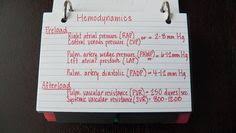 Hemodynamics
Preload
Right atrial pressure (RAP)
Central venous pressure (CVP) or = 2-8 mm Hg
Pulm. artery wedge pressure (PAWP)
Left atrial pressure (LAP) = 6-12 mm Hg
Pulm. artery diastolic (PADP) = 4-12 mm Hg
Afterload
Pulm. vascular resistance (PVR) = 250 dynes/sec
Systemic vascular resistance (SVR) = 800-1200